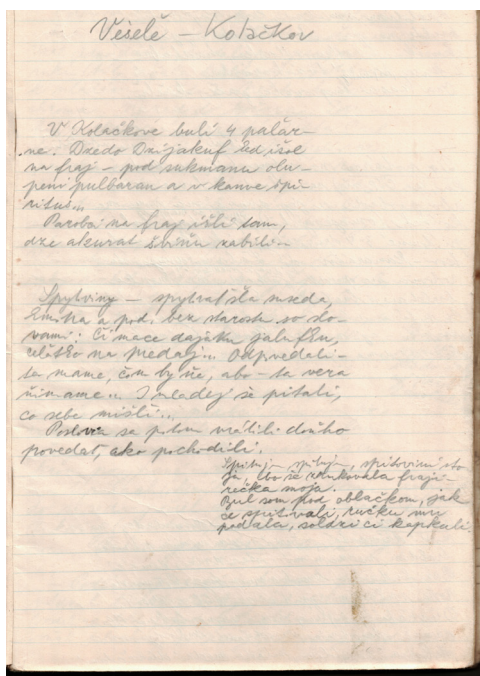 Veselé – Kolačkov
V Kolačkove buli 4 palár-
ne. Dzedo išol
na fraj – pod sukmanu olu-
peni pulbaran a v kanve špi-
ritus...
Parobci na fraj išli tam,
dze akurat šviňu zabili –
Spytviny – spytvat šla
a pod. bez starostu so slo-
vami: Či mace dajaku jalufku,
celätko na predaj... Odpovedali –
ta mame, čom by ňe, abo – ta vera
ňimame... I mladej še pitali,
co sebe mišľi...
Poslovia sa potom vrátili dorvho
povedať, ako pochodili.
spitovini sto
ja, fraji-
rečka moja.
Bul som pod oblačkom, jak
ce spitovali, ručku mu
podala, soldzi ci kapkali.